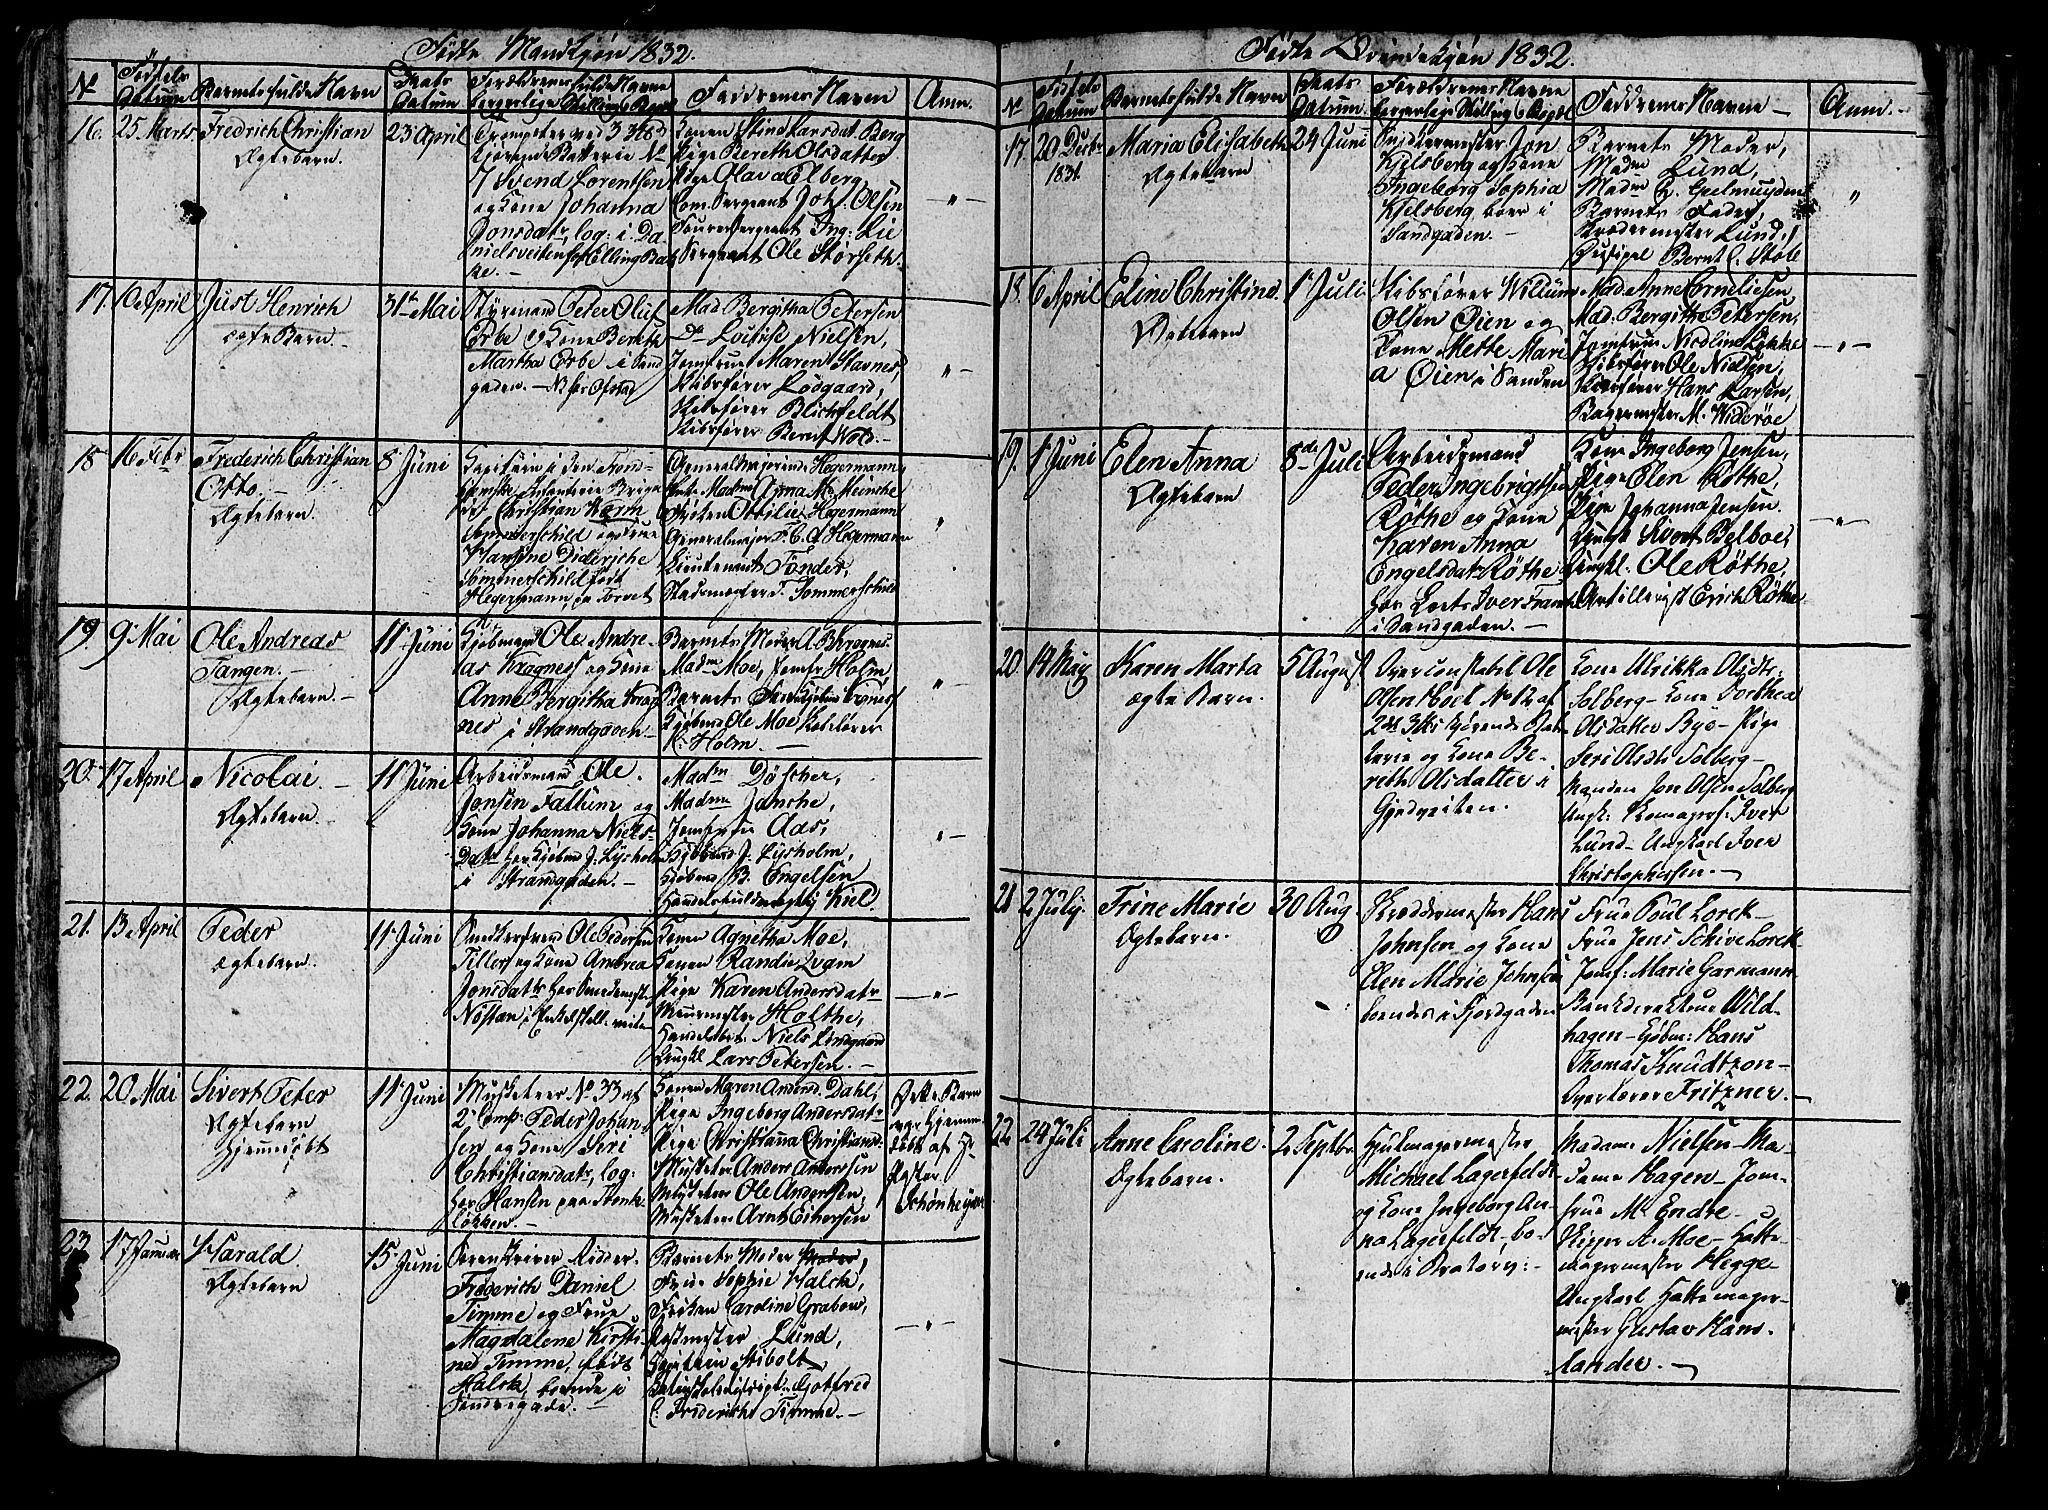 Fødte Mandkjøn 1832.
No
Fødsels Datum
Barnets fulde Navn
Daabs Datum
Forældrenes fulde Navne borgerlige Stilling & Bopæl
Faddrenes Navne
Anm.
16.
25 Marts
Fredrich Christian
Ægtebarn.
23 April
Trompeter ved 3
Kjørende Batterie No
7 Svend Lorentsen
og Kone Johanna
Jonsdatr, log: i Da-
nielsveiten
Pige Bereth Olsdatter
Pige Olava Elberg
Com. Sergeant Joh. Olsen
Sergeant Ing: Lie
Sergeant Ole Störseth
— " —
17.
10 April
Just Henrich
ægte Barn.
31te Mai
Styrmand Peter Oluf
Erbe og Kone Bereth
Martha Erbe i Sand-
gaden. —
Mad Bergitha Petersen
do Lovise Nielsen,
Jomfrue Maren Stavnes,
Skibsfører Lödgaard,
Skibsfører Blichfeldt
Skibsfører Bernt Wold. —
"
18
16 Febr
Frederich Christian
Otto. —
Ægtebarn.
8 Juni
Capitain i den Trond-
hjemske Infanterie Briga-
de Christian Worm
Sommerschild og Frue
Hansine Dideriche
Sommerschild født
Hegermann, paa Torvet
Generalmajorinde Hegermann,
Madme Anna M. Meincke
Frøiken Ottilie Hegermann
Generalmajor Hegermann
Lieutenant Tönder,
Stadsmægler F. Sommerschild
"
19.
9 Mai
Ole Andreas
Tangen. —
Ægtebarn. —
11 Juni
Kjøbmand Ole Andre-
as Kragness og Kone
Anne Bergitha Krag-
nes i Strandgaden —
Barnets Moder A B Kragnes.
Madm Moe, Jomfr Holm,
Kjøbmd Ole Moe
Holm. —
" —
20.
17 April
Nicolai. —
Ægtebarn. —
11 Juni
Arbeidsmand Ole
Jonsen Fallum og
Kone Johanna Niels-
Datr hos Kjøbmd J. Lysholm
i Strandgaden. —
Madm Döscher,
Madme Jenche,
Jomfrue Aas,
Kjøbmd J. Lysholm,
Kjøbmd B. Engelsen
Handelsfuldmægtig Kiel.
" —
21.
13 April
Peder
ægtebarn.
11 Juni
Snedkersvend Ole Pedersen
Tiller og Kone Andrea
Jonsdatr hos Smedemest.
Nöstan i
Konen Agnetha Moe,
Konen Randie Qvam
Pige Karen Andersdatr
Muurmester Holthe,
Handelsbet. Niels Lindgaard
Ungkl Lars Petersen. —
— " —
22.
20 Mai
Sivert Peter
Ægtebarn
Hjemmedöbt
11 Juni
Musketeer No 33 af
2 Comp: Peder Johan-
sen og Kone Siri
Christiansdatr, log:
hos Hansen paa Steenk-
løkken. —
Konen Maren Andersd. Dahl,
Pige Ingeborg Andersdatr
Pige Christianna Christians.
Musketeer Anders Andersen
Musketeer Ole Andersen,
Musketeer Arnt Einersen
Dette Barn
er Hjemme-
döbt af Hr
Pastor
Schønheyder
23
17 Januar
Harald
Ægtebarn
15 Juni
Sorenskriver Ridder
Frederich Daniel
Timme og Frue
Magdalene Kirsti-
ne Timme, född
Halck, boende i
Söndregade. —
Barnets Moder
Frue Sophie Halck,
Frøken Caroline Grabow,
Postmester Lund,
Capitain Stibolt
Gotfred
C. Frederichs Timme. —
— " —
Fødte Qvindekjøn 1832.
No
Fødsels Datum
Barnets fulde Navn
Daabs Datum.
Forældrenes Navne borgerlige Stilling & Bopæl
Faddrenes Navne —
Anm. —
17
20 Decbr 1831
Maria Elisabeth
Ægtebarn
24 Juni
Snidkermester Jon
Kjelsberg og Kone
Ingeborg Sophia
Kjelsberg boer i
Sandgaden. —
Barnets Moder,
Madm Lund,
Madm C. Geelmuyden
Barnets Fader,
Lund,
Discipel Bernt C. Støle
"
18.
6 April
Edine Christine.
Ægtebarn
1 Juli
Skibsfører Willum
Olsen Øien og
Kone Mette Mari-
a Øien i Sanden
Mad. Anne Corneliesen
Mad: Bergithe Petersen,
Jomfrue Nicoline Løkke
Skibsfører Ole Nielsen,
Skibsfører Hans Larsen,
Bagermester M. Widerøe
— " —
19.
1 Juni
Elen Anna
Ægtebarn
8de Juli
Arbeidsmand
Peder Ingebrigtsen
Röthe og Kone
Karen Anna
Engelsdatr Röthe
hos Iver Frank
i Sandgaden. —
Kone Ingeborg Jensen,
Pige Elen Röthe,
Pige Johanna Jensen.
Ungk Sivert Belboe,
Ungkl: Ole Röthe,
Artillerist Erich Röthe
— " —
20
14 May
Karen Marta
ægte Barn.
5 August
Overconstabel Ole
Olsen Hoel No 12 af
2det 3 kjørende Bat-
terie og Kone Be-
rethe Olsdatter i
Gjedveiten.
Kone Ulrikka Olsdtr.
Solberg — Kone Dorthea
Olsdatter Bye — Pige
Seri Olsdtr Solberg —
Manden Jon Olsen Solberg
Ungk: Iver
Lund — Ungkarl Iver
Christophersen. —
21
2 July.
Trine Marie
Ægtebarn.
30 Aug.
Skræddermester Hans
Johnsen og Kone
Elen Marie Johnsen
boendes i Fjordgaden
Frue Poul Lorck —
Frue Jens Schive Lorck —
Jomf: Marie Garmann
Bankdirekteur Wild-
hagen — Kjøbm: Hans
Thomas Knudtzon —
Overlærer Fritzner. —
22
24 Juli
Anne Caroline.
Ægtebarn.
2 Septbr.
Hjulmagermester
Michael Lagerfeldt
og Kone Ingeborg An-
na Lagerfeldt, bo-
ende i Bratøry: —
Madame Nielsen — Ma-
dame Hagen — Jom-
frue M. Endre —
Skipper A. Moe — Hatte-
magermester Hegge —
Ungkarl Hattemager-
mester Gustav Hans-
lander. —